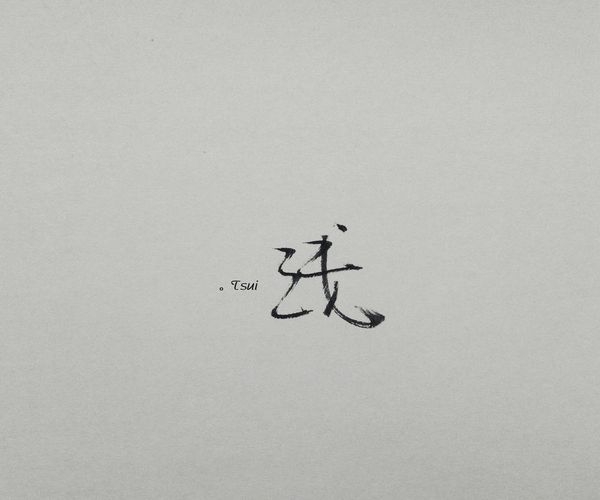 。Tsui
线